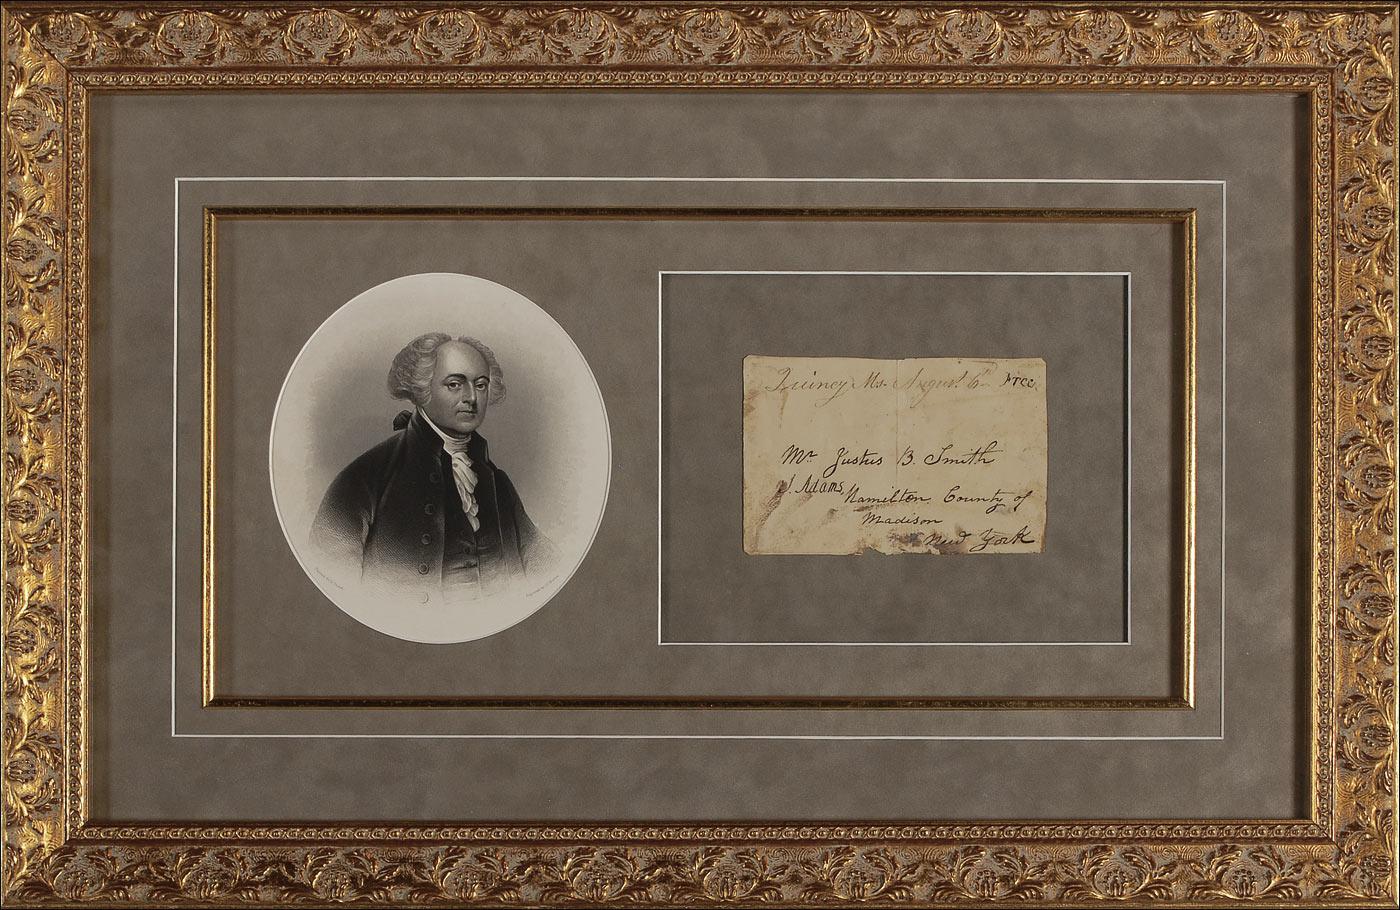 Quincy Ms. August 6th Free
Mr Justus B. Smith
J. Adams
Hamilton, County of
Madison
New York